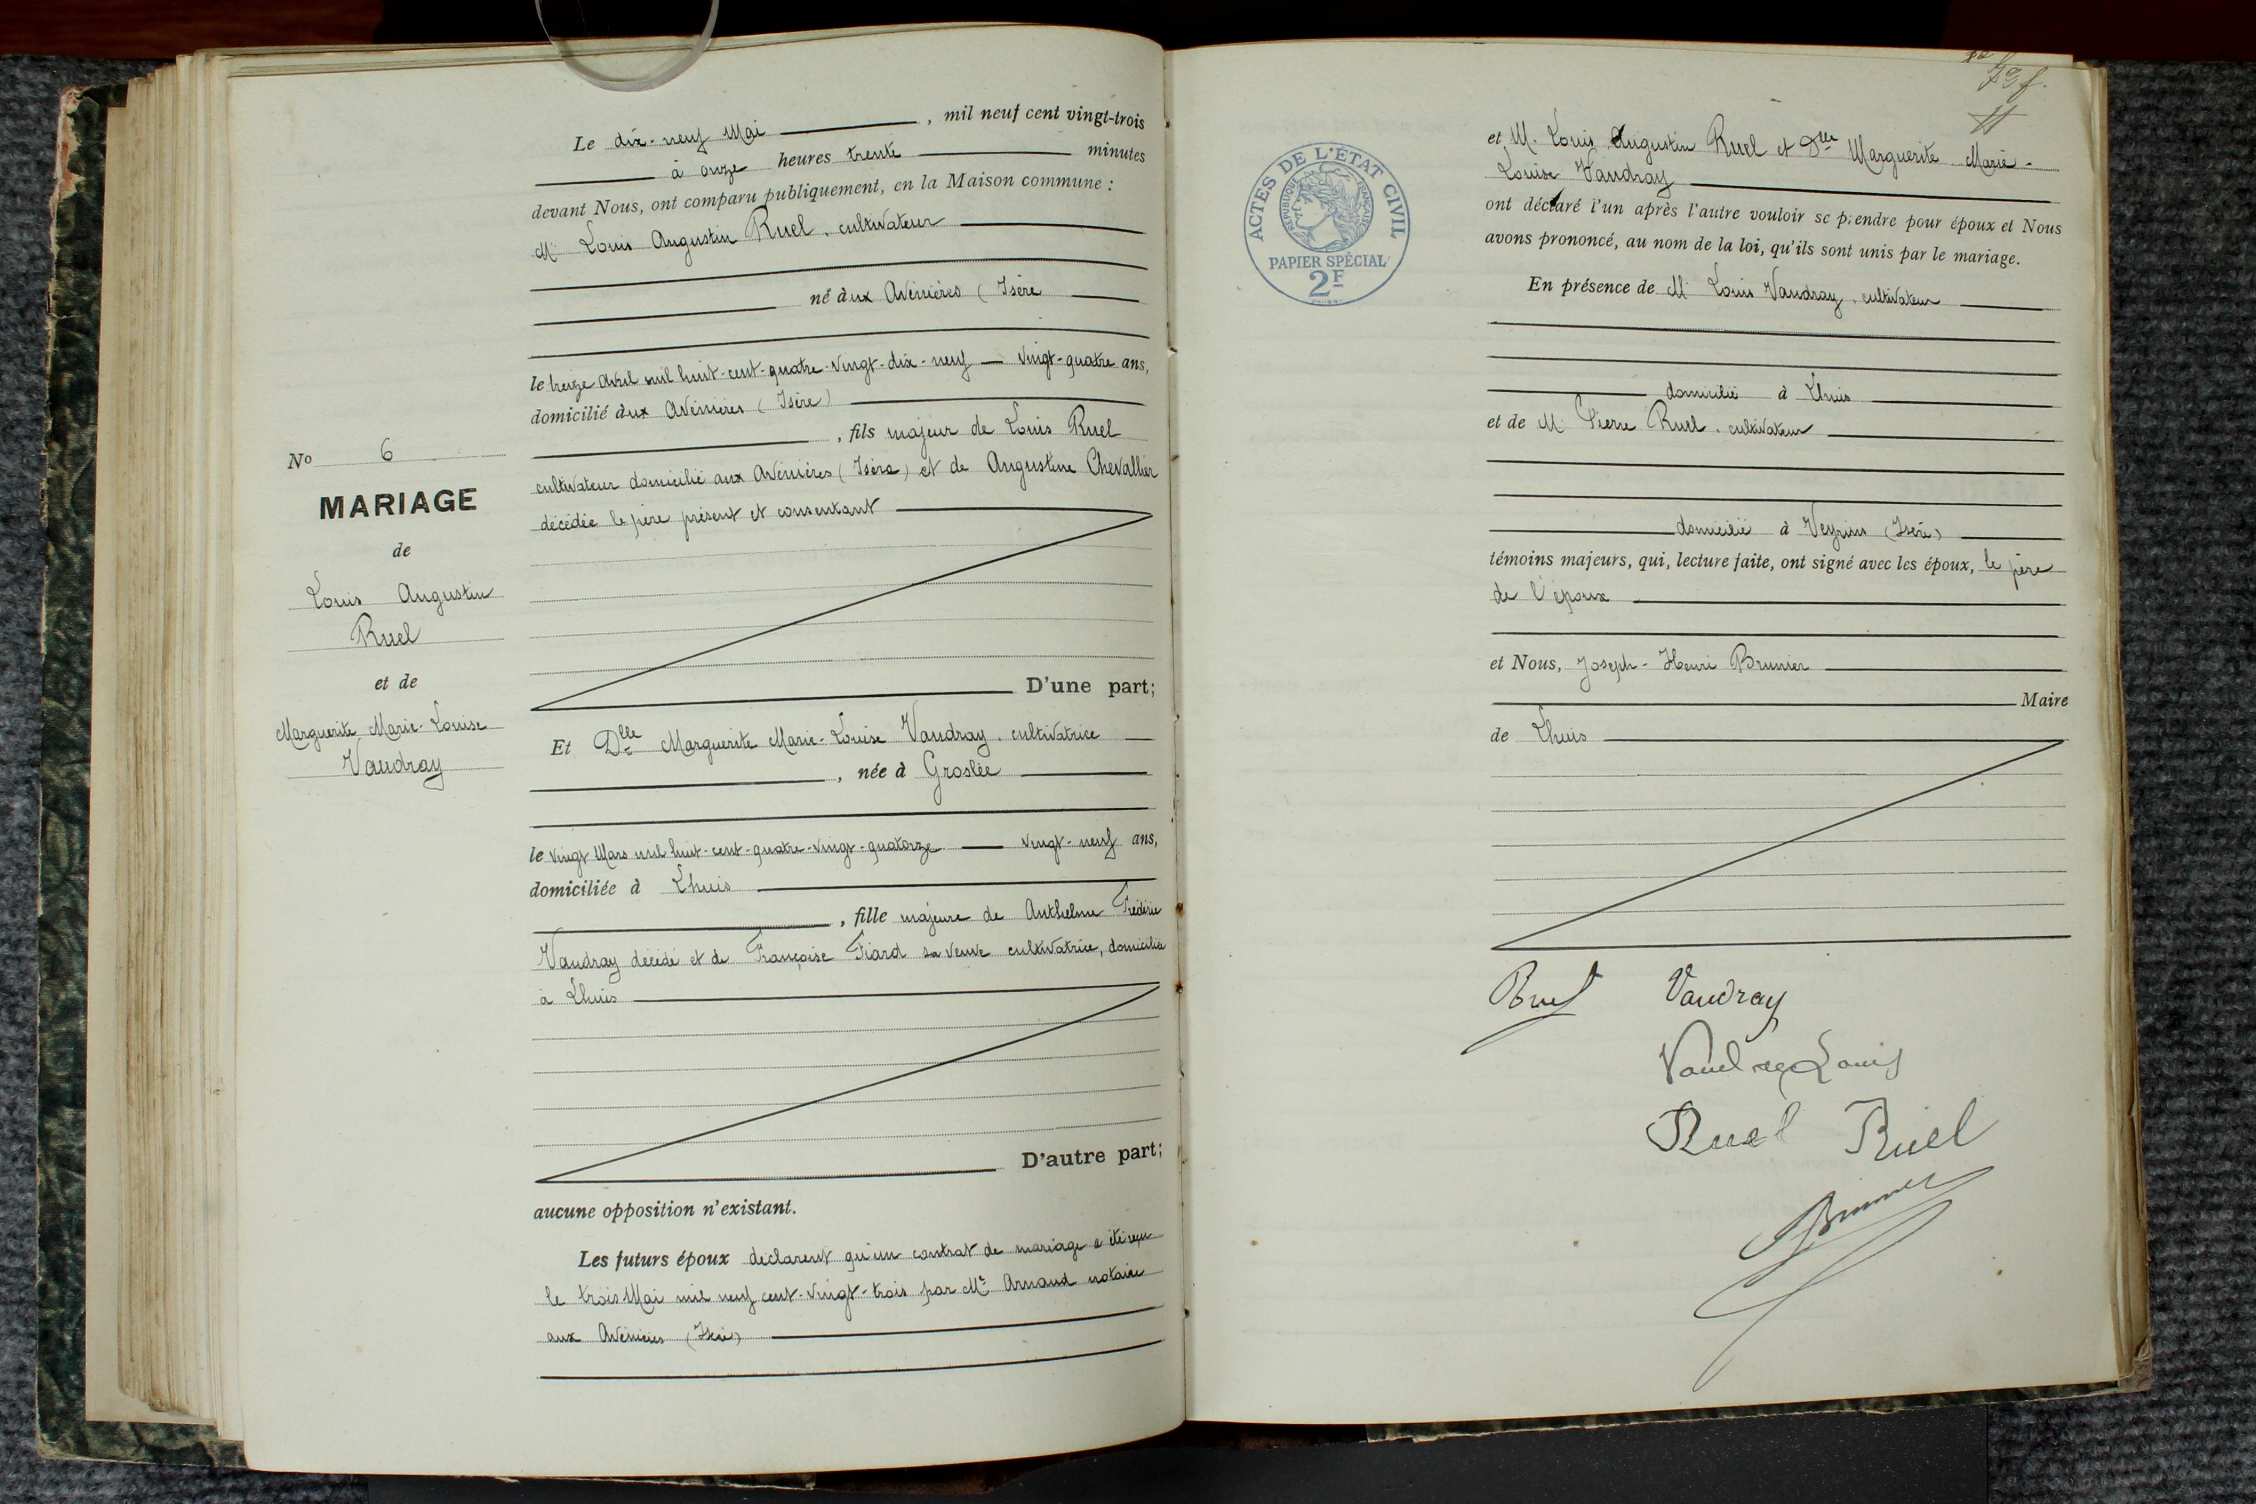 Le dix-neuf Mai , mil neuf cent vingt-trois
à onze heures trente minutes
devant Nous, ont comparu publiquement, en la Maison commune :
M. Louis Augustin Ruel, cultivateur
né aux Avenières (Isère
le treize Avril mil huit-cent-quatre-vingt-dix-neuf — vingt-quatre ans,
domicilié aux Avenières (Isère)
, fils majeur de Louis Ruel
cultivateur domicilié aux Avenières (Isère) et de Augustine Chevallier
décédée le père présent et consentant
D'une part;
No 6
MARIAGE
de
Louis Augustin
Ruel
et de
Marguerite Marie-Louise
Vaudray
Et Dlle Marguerite Marie-Louise Vaudray, cultivatrice
, née à Groslée
le vingt Mars mil huit-cent-quatre-vingt-quatorze — vingt-neuf ans,
domiciliée à Lhuis
, fille majeure de Anthelme Frédéric
Vaudray décédé et de Françoise Fiard sa veuve cultivatrice, domiciliée
à Lhuis
D'autre part;
aucune opposition n'existant.
Les futurs époux déclarent qu'un contrat de mariage a été reçu
le trois Mai mil neuf cent-vingt-trois par Me Arnaud notaire
aux Avenières (Isère)
73 f.
ACTES DE L'ÉTAT CIVIL
RÉPUBLIQUE FRANÇAISE
PAPIER SPÉCIAL
2F
et M. Louis Augustin Ruel et Dlle Marguerite Marie-
Louise Vaudray
ont déclaré l'un après l'autre vouloir se prendre pour époux et Nous
avons prononcé, au nom de la loi, qu'ils sont unis par le mariage.
En présence de M. Louis Vaudray, cultivateur
domicilié à Lhuis
et de M. Pierre Ruel, cultivateur
domicilié à Veyrins (Isère)
témoins majeurs, qui, lecture faite, ont signé avec les époux, le père
de l'époux
et Nous, Joseph-Henri Brunier
Maire
de Lhuis
Ruel Vaudray
Vaudray Louis
Ruel Ruel
Brunier